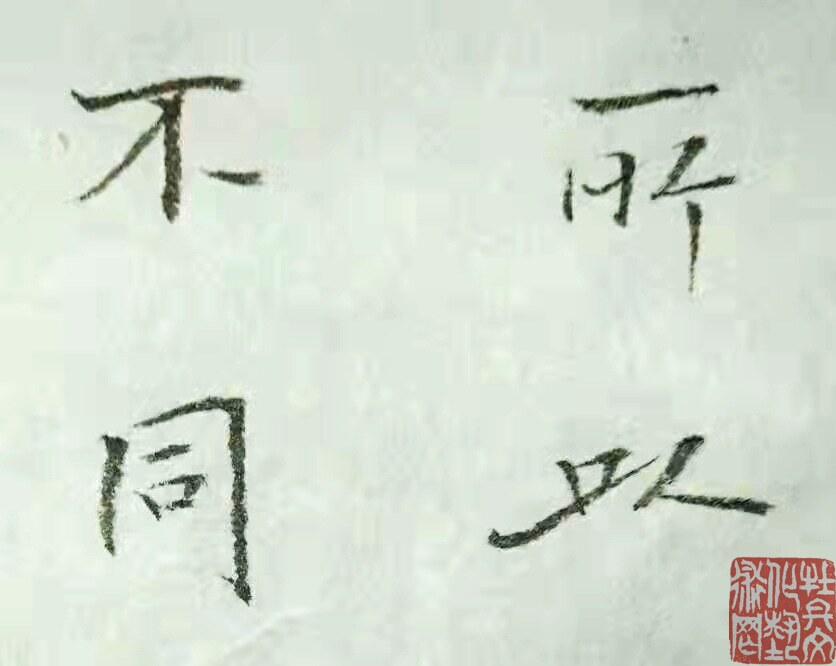 所以
不同